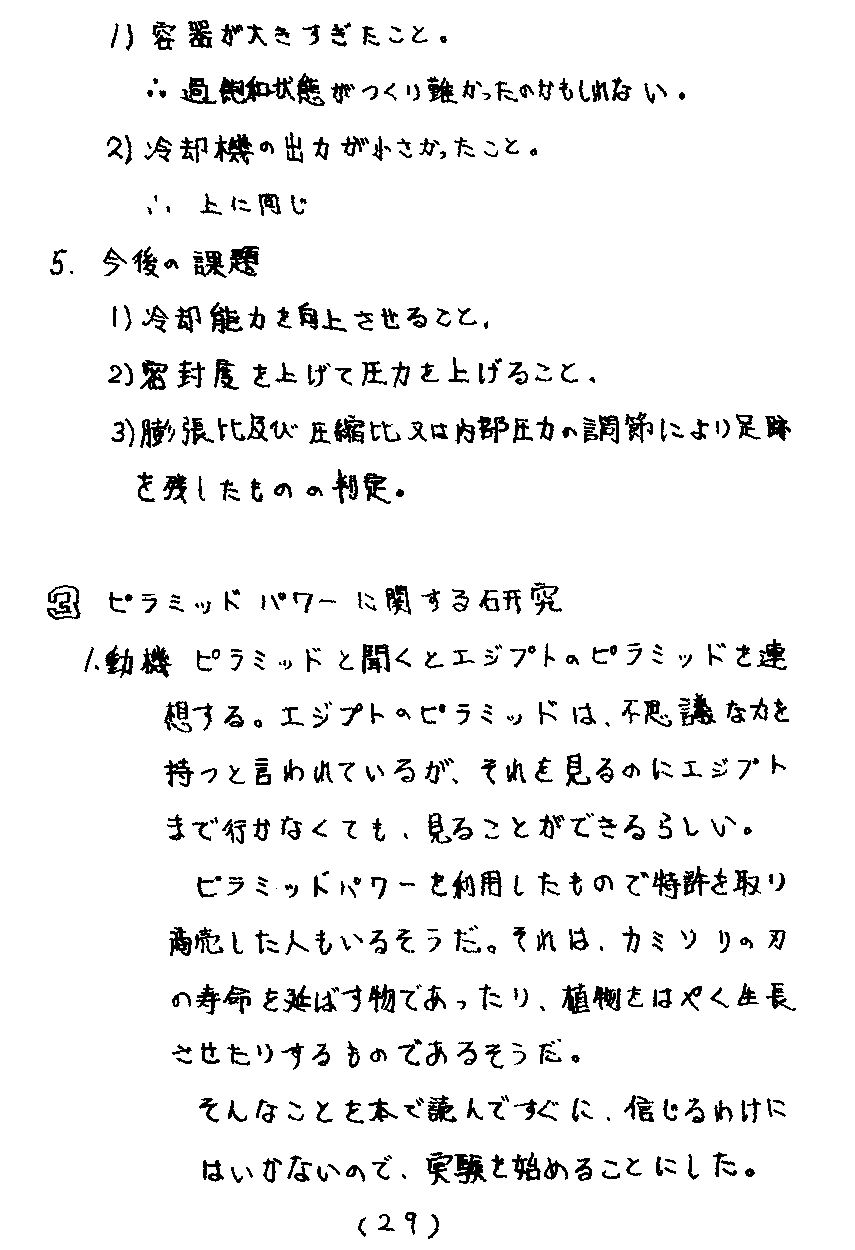 1) 容器が大きすぎたこと。
∴ 過飽和状態がつくり難かったのかもしれない。
2) 冷却機の出力が小さかったこと。
∴ 上に同じ
5. 今後の課題
1) 冷却能力を向上させること、
2) 密封度を上げて圧力を上げること、
3) 膨張比及び圧縮比又は内部圧力の調節により足跡
を残したものの判定。
3 ピラミッドパワーに関する研究
1.動機 ピラミッドと聞くとエジプトのピラミッドを連
想する。エジプトのピラミッドは、不思議な力を
持つと言われているが、それを見るのにエジプト
まで行かなくても、見ることができるらしい。
ピラミッドパワーを利用したもので特許を取り
商売した人もいるそうだ。それは、カミソリの刃
の寿命を延ばす物であったり、植物をはやく生長
させたりするものであるそうだ。
そんなことを本で読んですぐに、信じるわけに
はいかないので、実験を始めることにした。
(29)